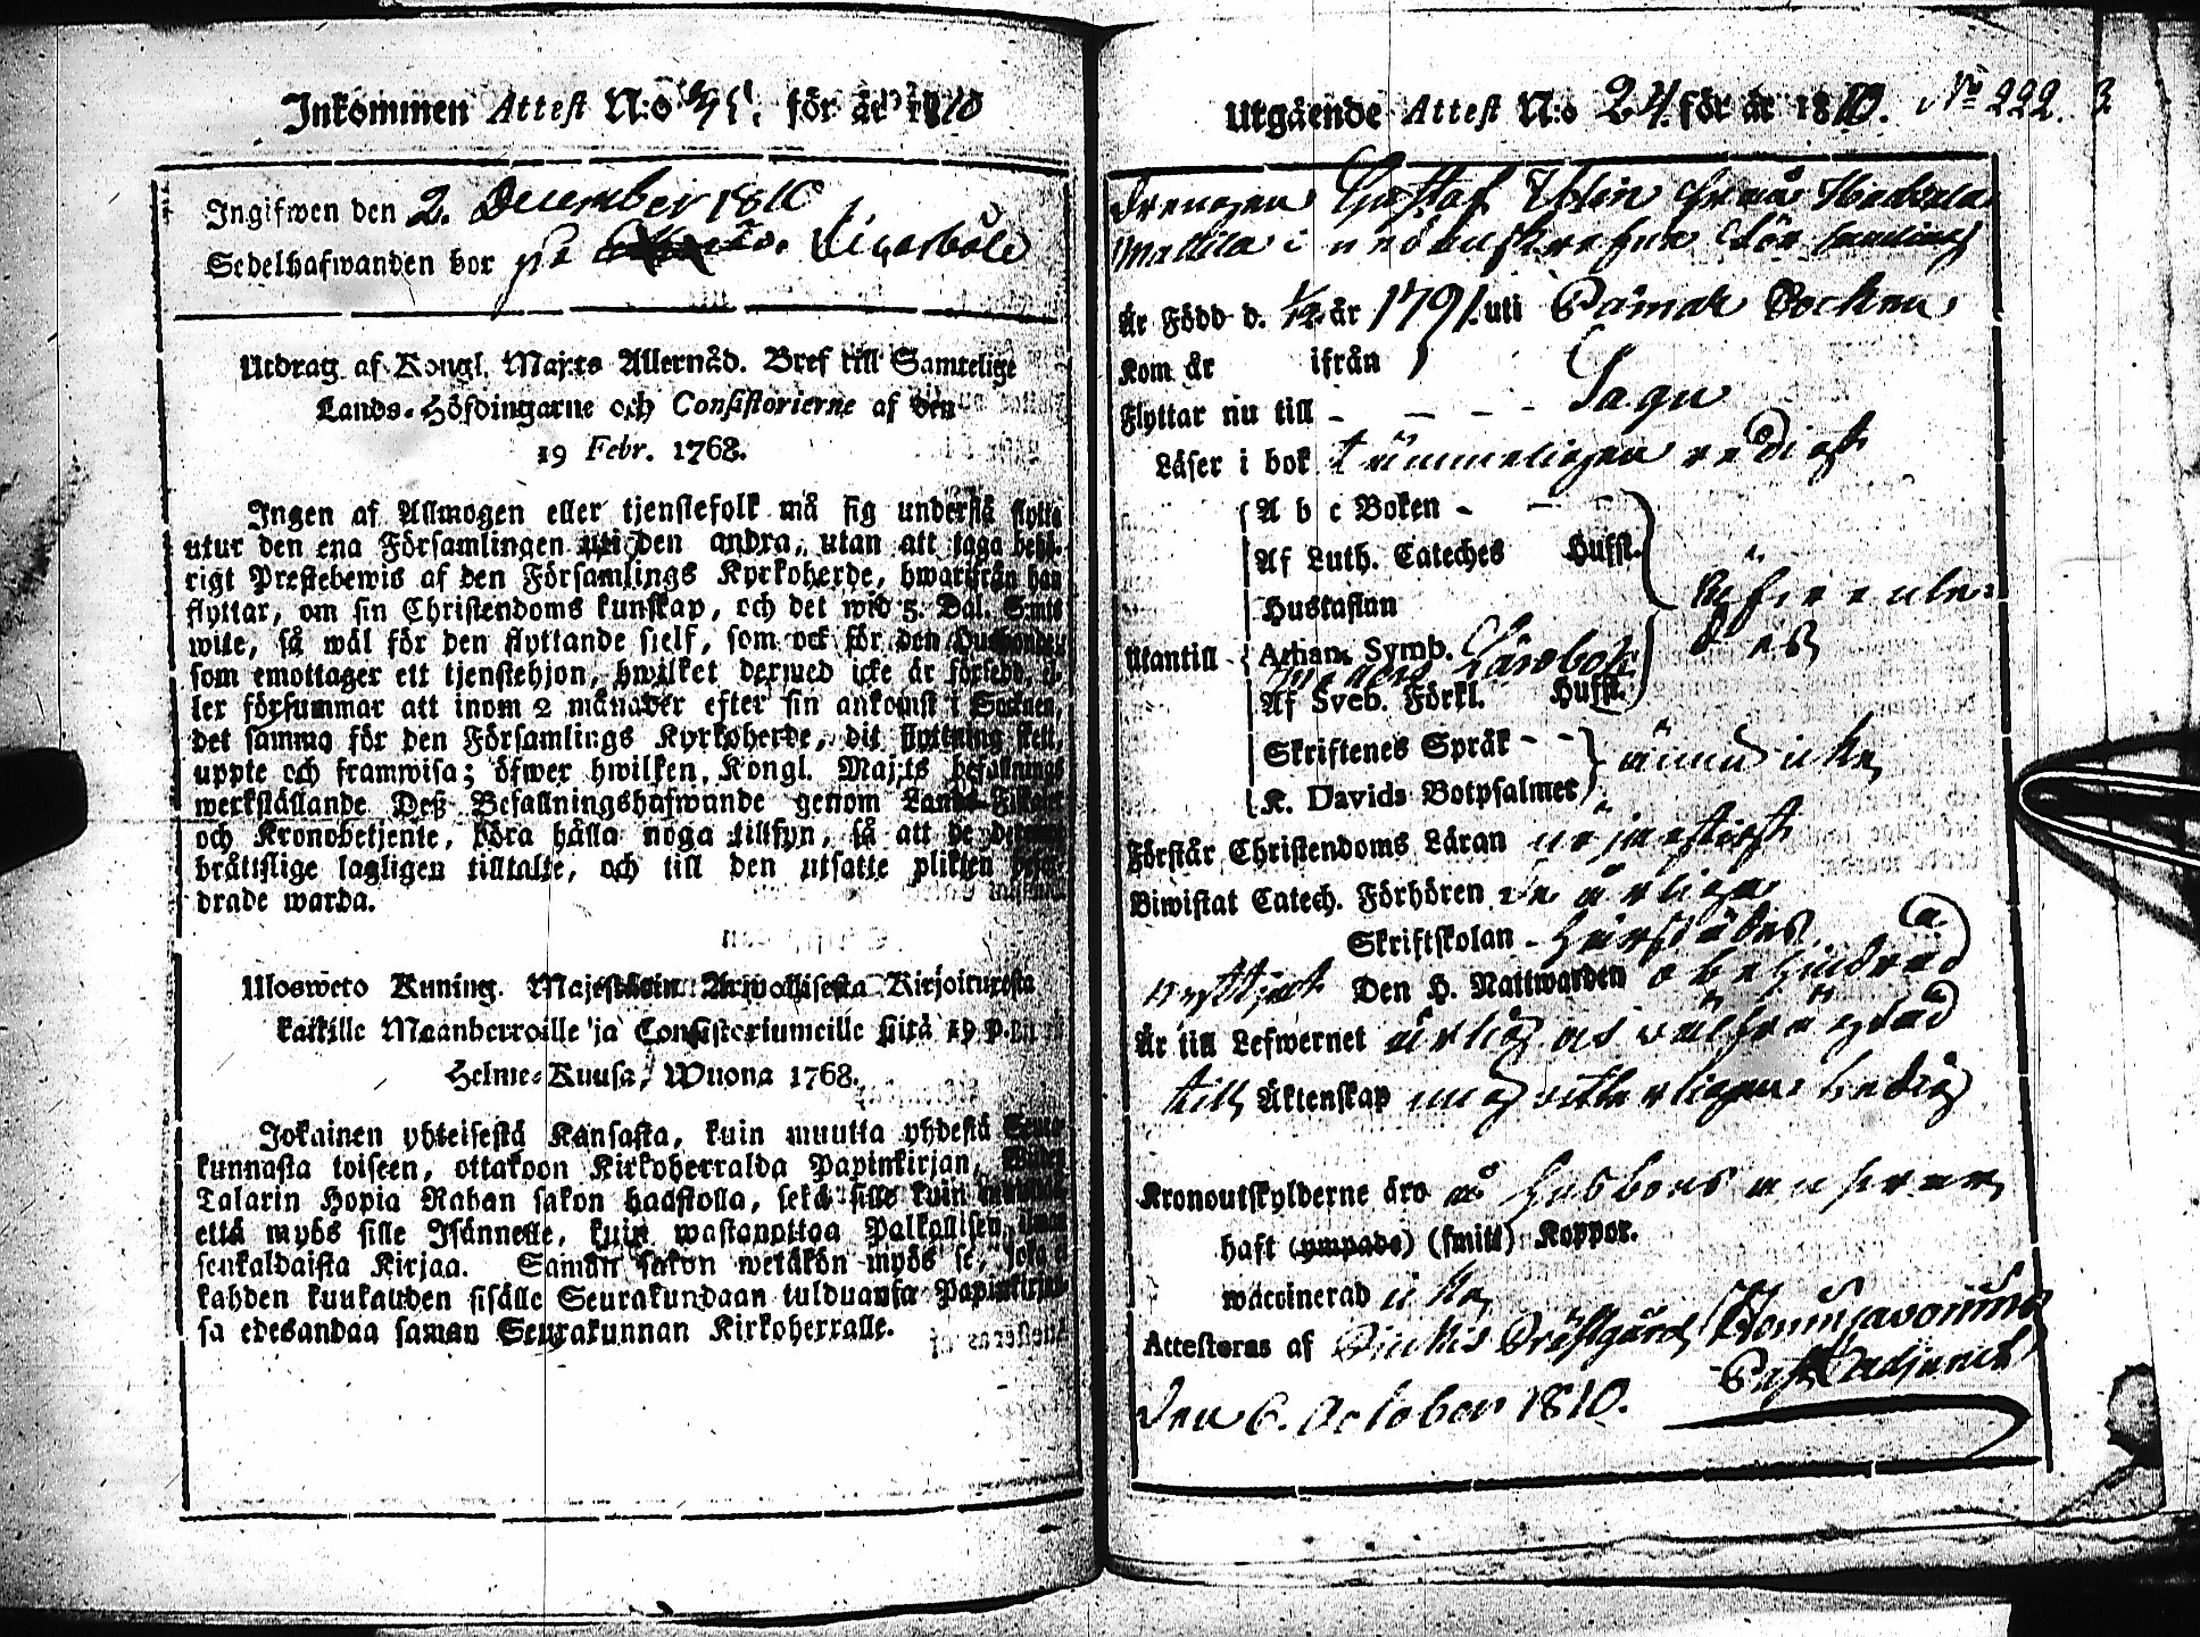 Inkommen Attest N:o för år 1810
Ingifwen den 2. December 1810
Sedelhafwanden bor på
Utdrag af Kongl. Maj:ts Allernåd. Bref till Samtelige
Lands-Höfdingarne och Consistorierne af den
19 Febr. 1768.
Ingen af Allmogen eller tjenstefolk må sig understå flytta
utur den ena Församlingen uti den andra, utan att taga behö-
rigt Prestebewis af den Församlings Kyrkoherde, hwarifrån han
flyttar, om sin Christendoms kunskap, och det wid 5. Dal. S:mts
wite, så wäl för den flyttande sjelf, som ock för den Husbonden
som emottager ett tjenstehjon, hwilket dermed icke är försedd, el-
ler försummar att inom 2 månader efter sin ankomst i Socknen,
det samma för den Församlings Kyrkoherde, dit flyttning skett,
uppte och framwisa; öfwer hwilken, Kongl. Maj:ts befallnings
werkställande Deß Befallningshafwande genom Lands-Fiskaler
och Kronobetjente, böra hålla noga tillsyn, så att de
bråttslige lagligen tilltalte, och till den utsatte plikten
drade warda.
Ulosweto Kuning. Majestätin Armollisesta Kirjoituxesta
kaikille Maanherroille ja Consistoriumeille siitä 19 p.
Helme-Kuusa, Wuona 1768.
Jokainen yhteisestä Kansasta, kuin muutta yhdestä Seura-
kunnasta toiseen, ottakoon Kirkoherralda Papinkirjan, Wiiden
Talarin Hopia Rahan sakon haastolla, sekä sille kuin muutta
että myös sille Isännelle, kuin wastanottaa Palkollisen, ilman
senkaldaista Kirjaa. Saman sakon wetäkön myös se, joka ei
kahden kuukauden sisälle Seurakundaan tulduansa Papinkirjan-
sa edesandaa saman Seurakunnan Kirkoherralle.
Utgående Attest N:o 24. för år 1810. No 222.
Drengen Gustaf från
Mattila i nedanskrefne Församling
Är Född d. 1/2 år 1791. uti Pämar Socken
Kom år ifrån
Flyttar nu till - - - - Sagu
Läser i bok tämmeligen redigt
A b c Boken -
Af Luth. Cateches Husfl.
Hustaflan
Utantill Athan. Symb.
Lärobok
Af Sveb. Förkl. Husfl.
Skriftenes Språk - -
K. Davids Botpsalmer
ännu icke
Förstår Christendoms Läran nöjaktigt
Biwistat Catech. Förhören de årliga
Skriftskolan - härstädes
nyttjat Den H. Nattwarden obehindrad
Är till Lefwernet ärlig och välfrägdad
till Äktenskap mig vitterligen ledig
Kronoutskylderne äro å husbondens ansvar
haft (ympade) (smitt) Koppor.
waccinerad icke
Attesteras af Piikkis Prästgård
Past. adjunct
den 6. October 1810.